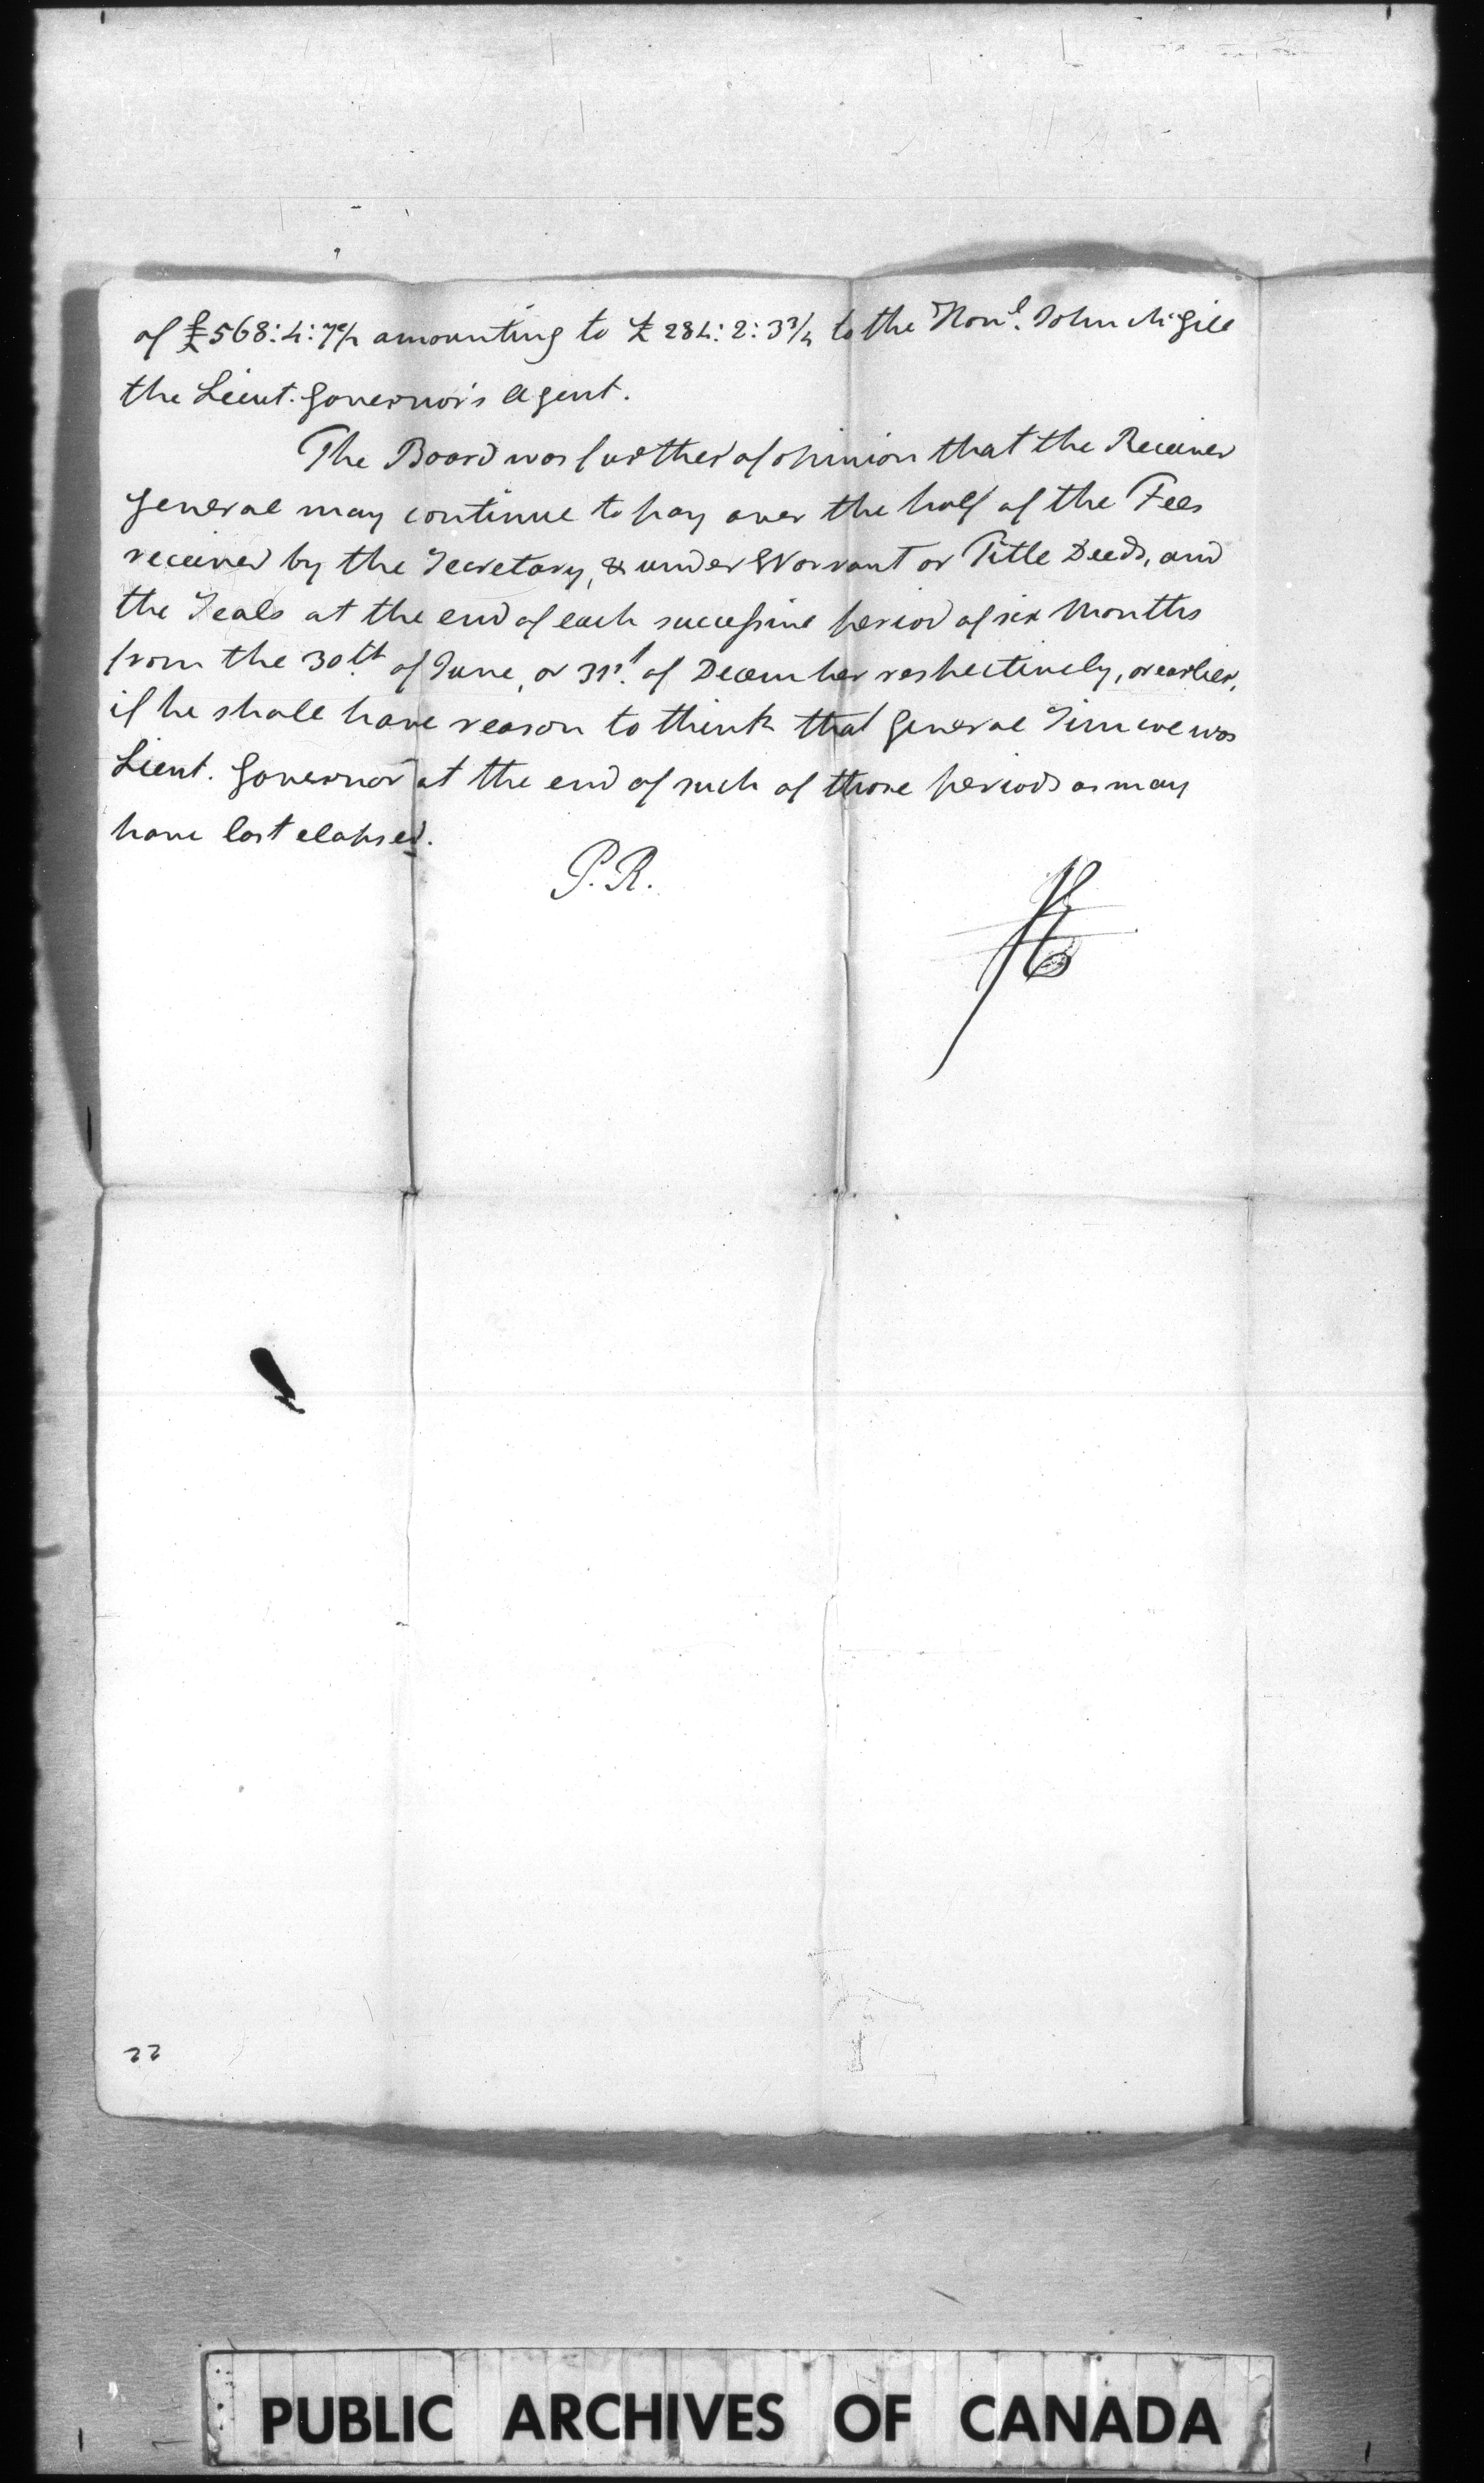 of £568:4:7½ amounting to £284:2:3¾ to the Honl. John McGill
the Lieut. Governor's Agent.
The Board was further of opinion that the Receiver
General may continue to pay over the half of the Fees
received by the Secretary, & under Warrant or Title Deeds, and
the Seals at the end of each successive period of six Months
from the 30th of June, or 31st. of December respectively, or earlier,
if he shall have reason to think that General Simcoe was
Lieut. Governor at the end of such of those periods as may
have last elapsed.
P.R.
22
PUBLIC ARCHIVES OF CANADA